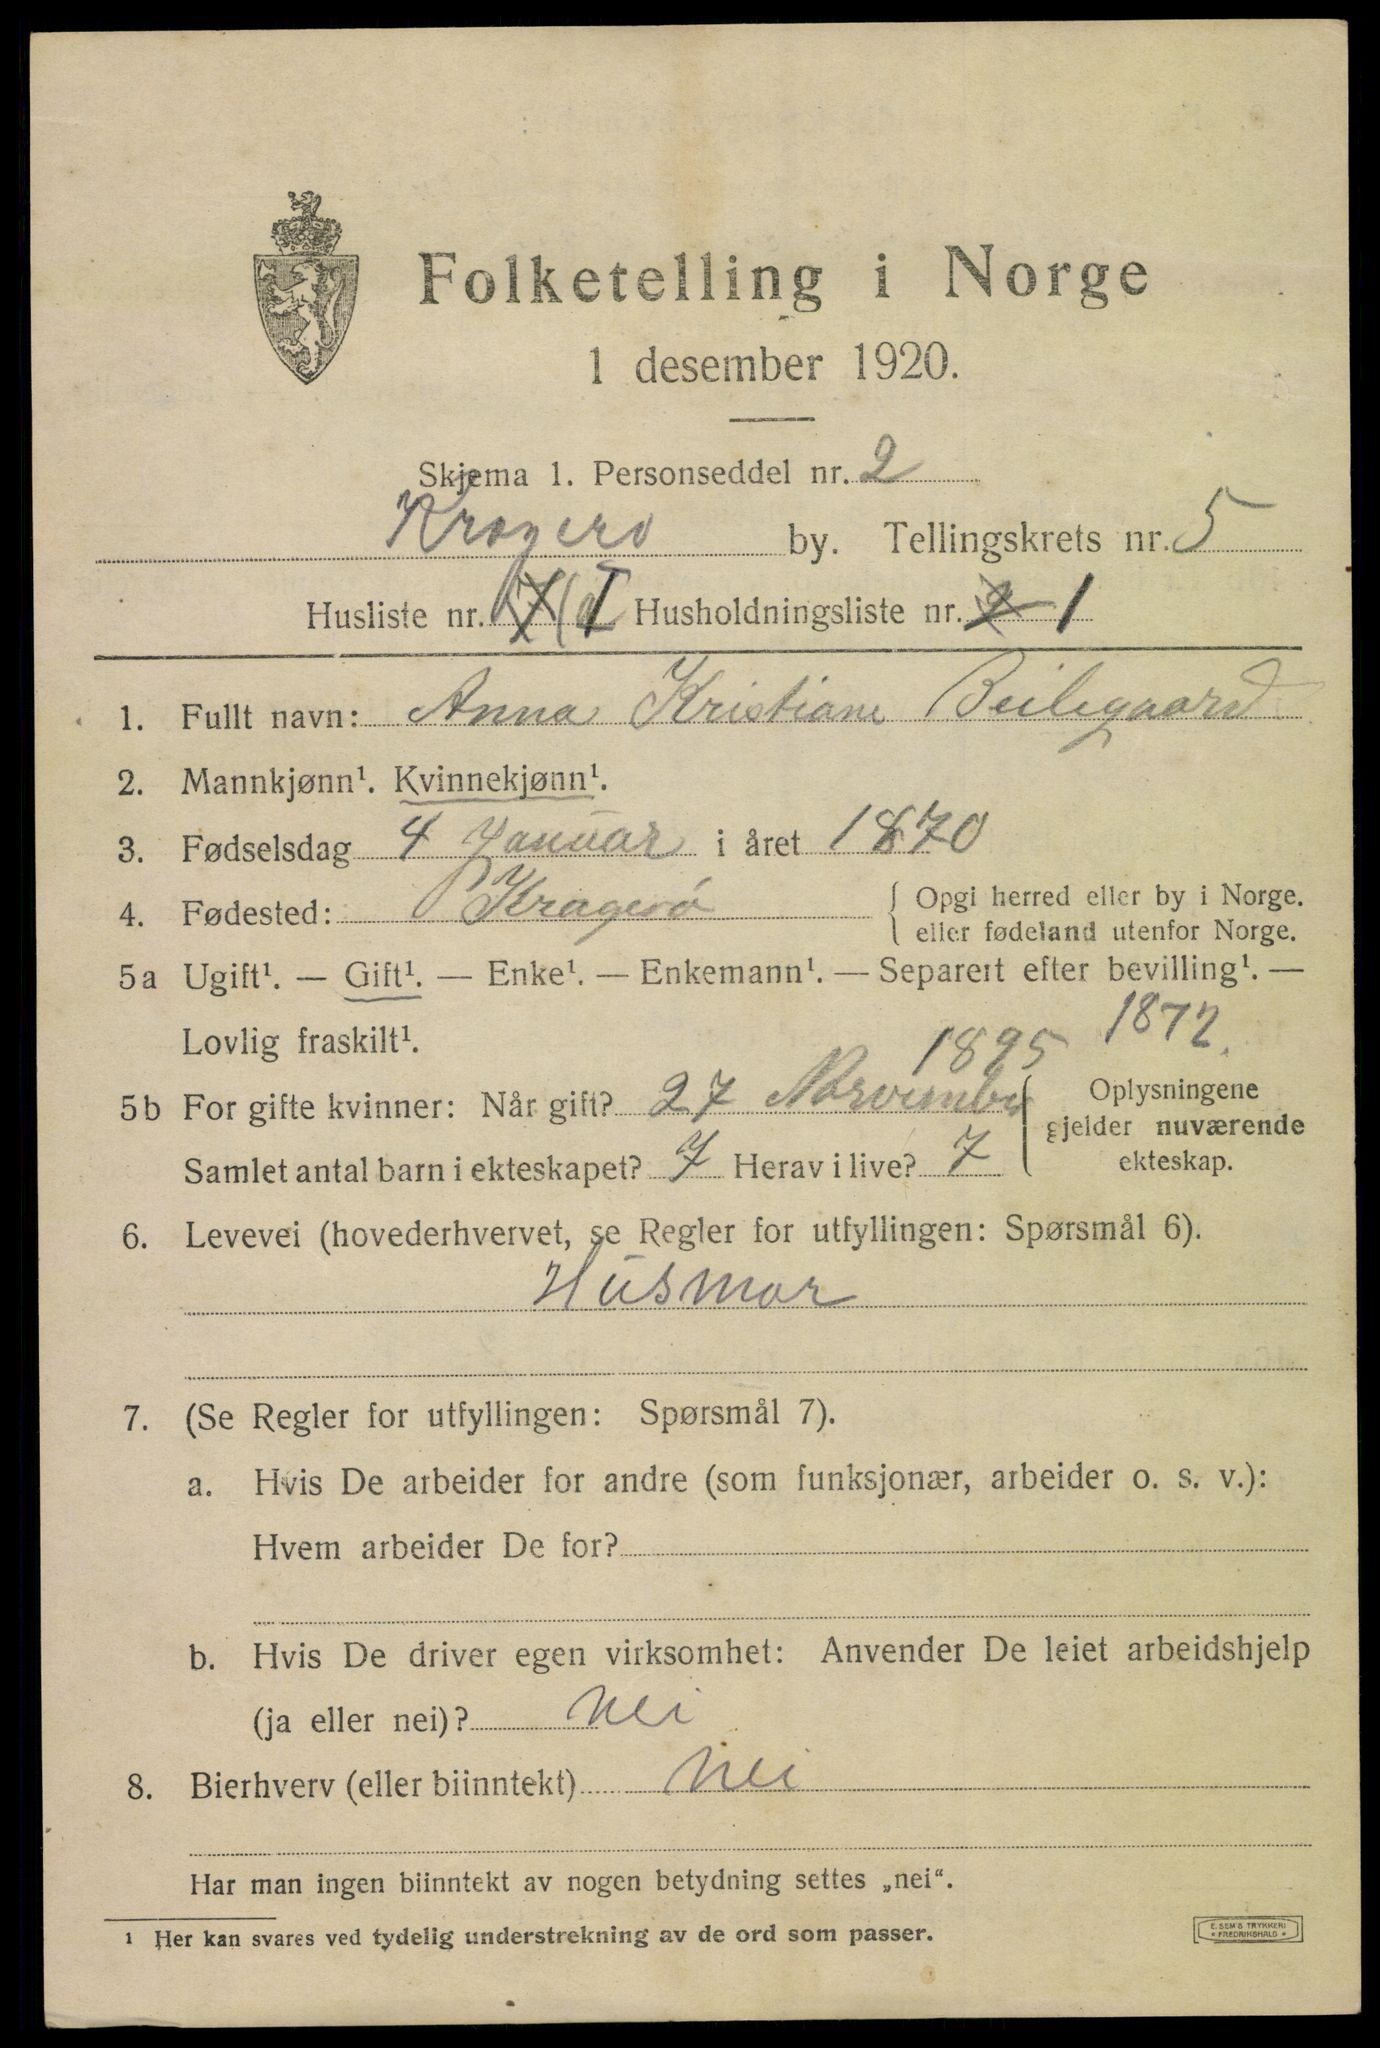 Folketelling i Norge
1 desember 1920.
Skjema 1. Personseddel nr. 2
Kragerø by. Tellingskrets nr. 5
Husliste nr. 7 1 Husholdningsliste nr. 2 1
1. Fullt navn: Anna Kristiane Beilegaard
2. Mannkjønn¹. Kvinnekjønn¹.
3. Fødselsdag 4 Januar i året 1870
4. Fødested: Kragerø { Opgi herred eller by i Norge.
eller fødeland utenfor Norge.
5a Ugift¹. — Gift¹. — Enke¹. — Enkemann¹. — Separert efter bevilling¹. —
Lovlig fraskilt¹. 1895 1872.
5b For gifte kvinner: Når gift? 27 November { Oplysningene
gjelder nuværende
ekteskap.
Samlet antal barn i ekteskapet? 7 Herav i live? 7
6. Levevei (hovederhvervet, se Regler for utfyllingen: Spørsmål 6).
Husmor
7. (Se Regler for utfyllingen: Spørsmål 7).
a. Hvis De arbeider for andre (som funksjonær, arbeider o. s. v.):
Hvem arbeider De for?
b. Hvis De driver egen virksomhet: Anvender De leiet arbeidshjelp
(ja eller nei)? nei
8. Bierhverv (eller biinntekt) nei
Har man ingen biinntekt av nogen betydning settes „nei“.
1 Her kan svares ved tydelig understrekning av de ord som passer.
E. SEM'S TRYKKERI
* FREDRIKSHALD *